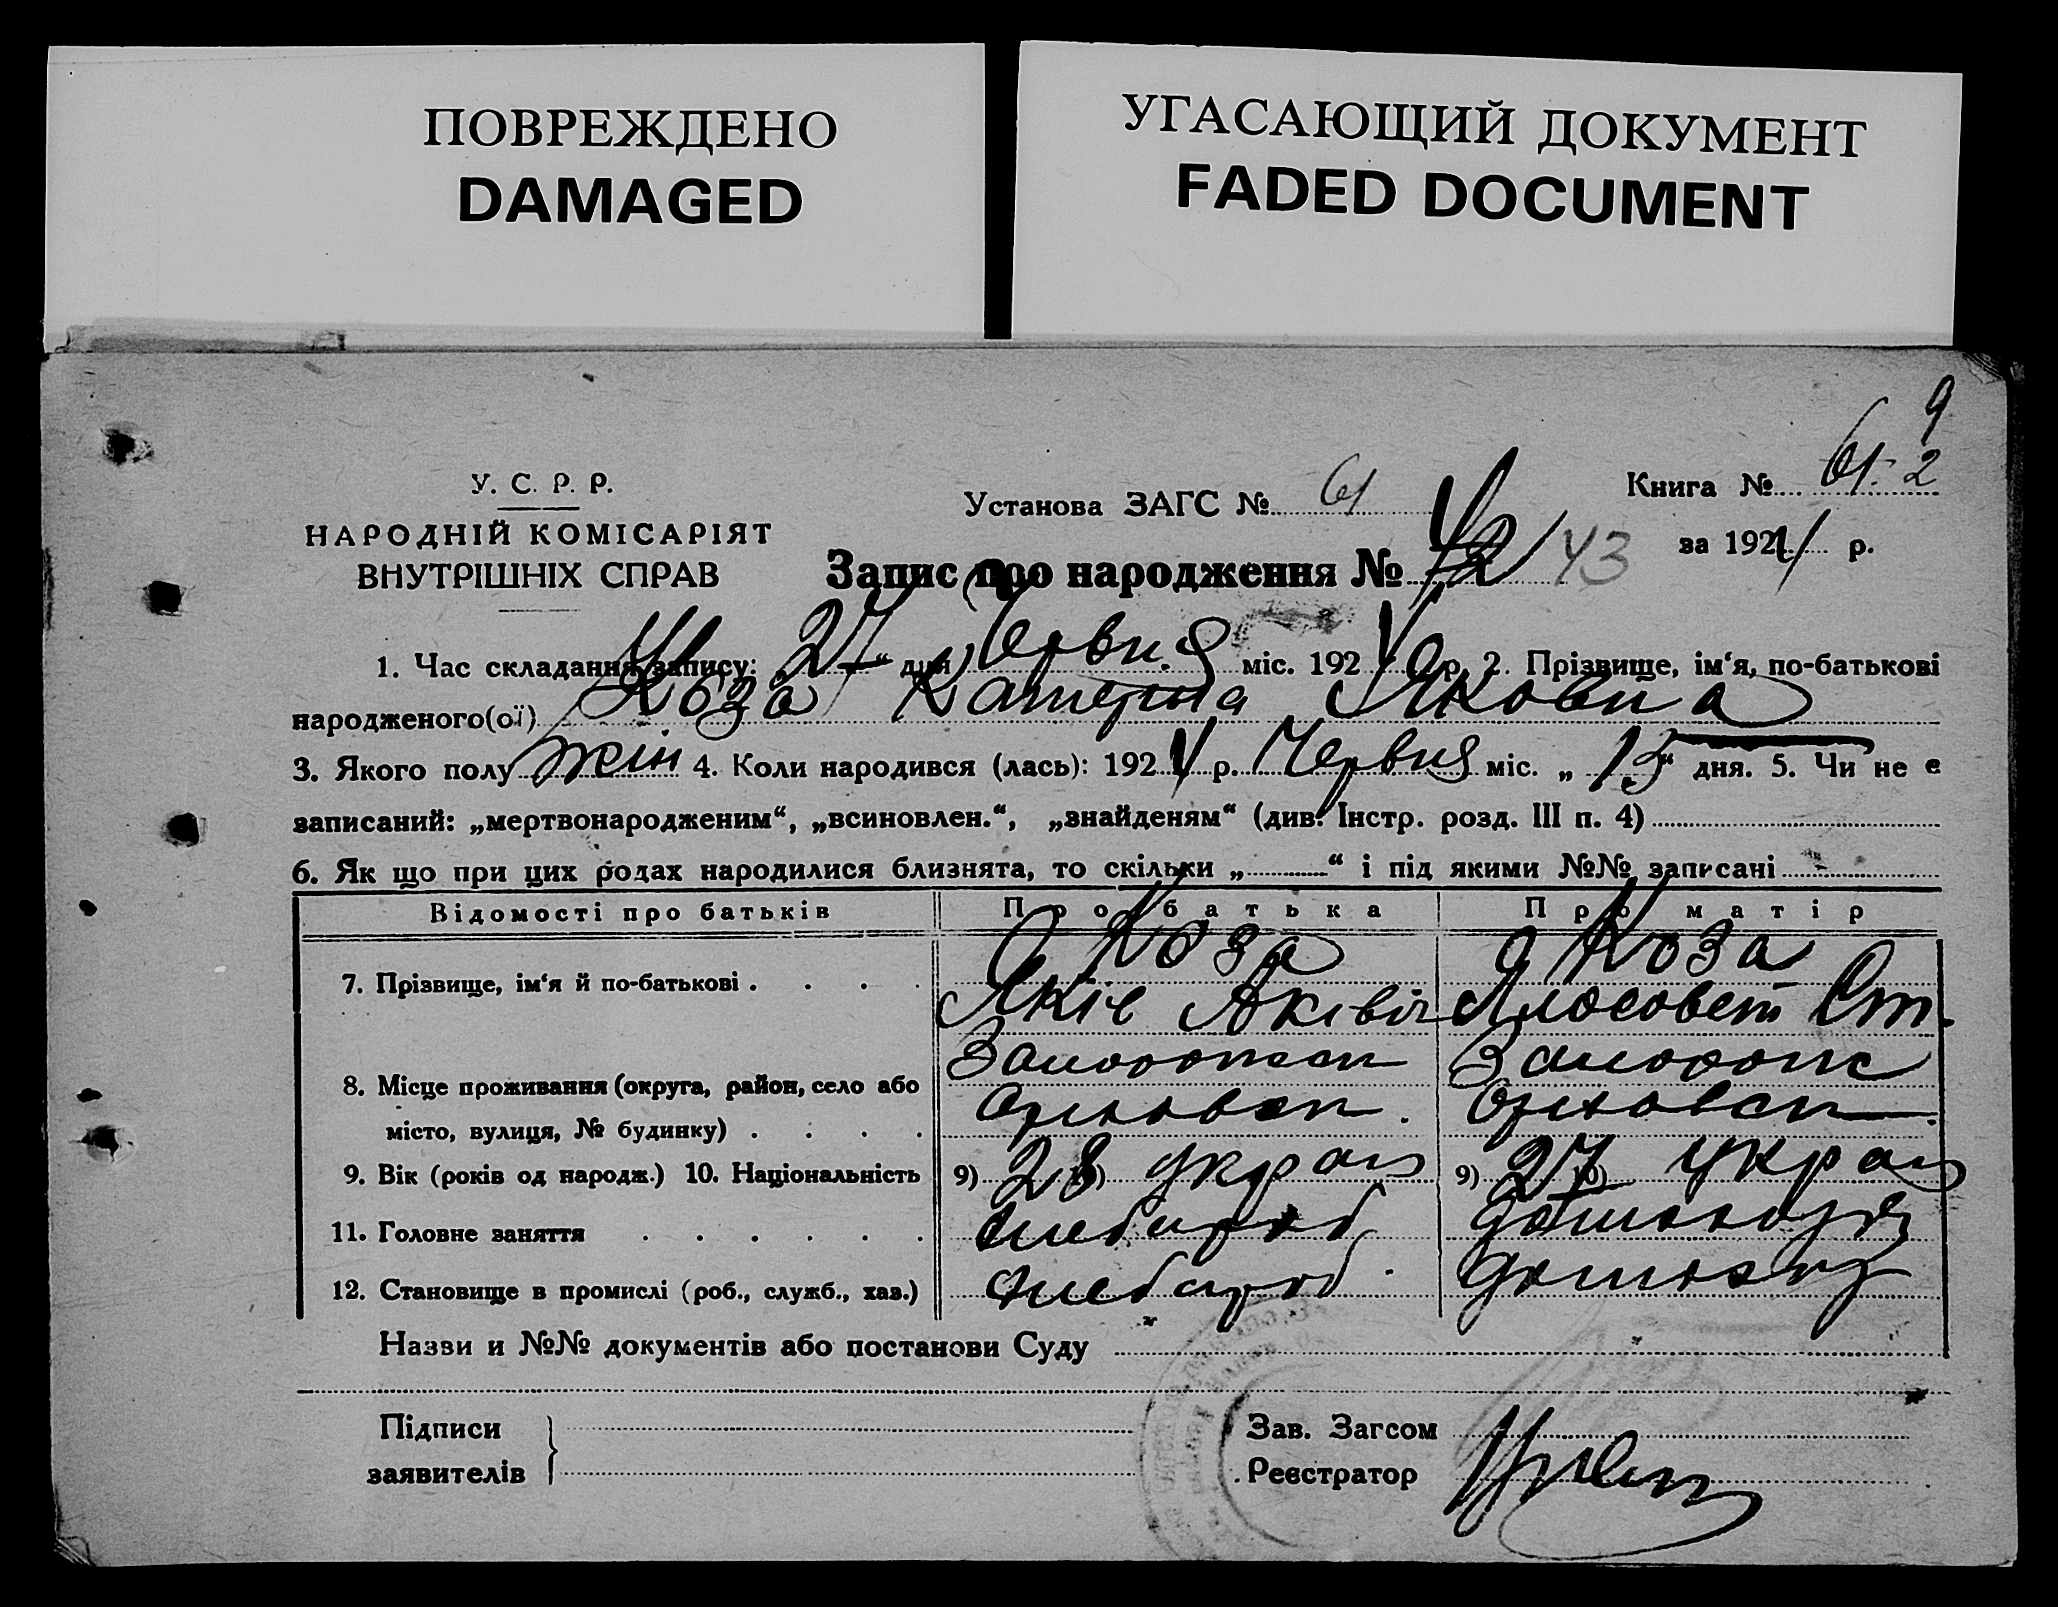 ПОВРЕЖДЕНО
DAMAGED
УГАСАЮЩИЙ ДОКУМЕНТ
FADED DOCUMENT
9
У. С. Р. Р.
НАРОДНІЙ КОМІСАРІЯТ
ВНУТРІШНІХ СПРАВ
Установа ЗАГС № 61
Книга № 61. 2
за 1924 р.
Запис про народження № 42 43
1. Час складання запису: 27 “ дня Червня міс. 1924 р. 2. Прізвище, ім‘я, по-батькові
народженого(ої) Коза Катерина Яковна
3. Якого полу жін 4. Коли народився (лась): 1924 р. Червня міс. „ 15 “ дня. 5. Чи не є
записаний: „мертвонародженим“, „всиновлен.“, „знайденям“ (див. Інстр. розд. III п. 4)
6. Як що при цих родах народилися близнята, то скільки „ “ і під якими №№ записані
Відомості про батьків Про батька Про матір
Коза Коза
7. Прізвище, ім‘я й по-батькові Яків
8. Місце проживання (округа, район, село або
місто, вулиця, № будинку)
9. Вік (років од народж.) 10. Національність 9) 28 10) украін 9) 27 10) украін
11. Головне заняття хлебороб
12. Становище в промислі (роб., служб., хаз.) хлебороб
Назви и №№ документів або постанови Суду
Підписи
заявителів
Зав. Загсом
Реєстратор